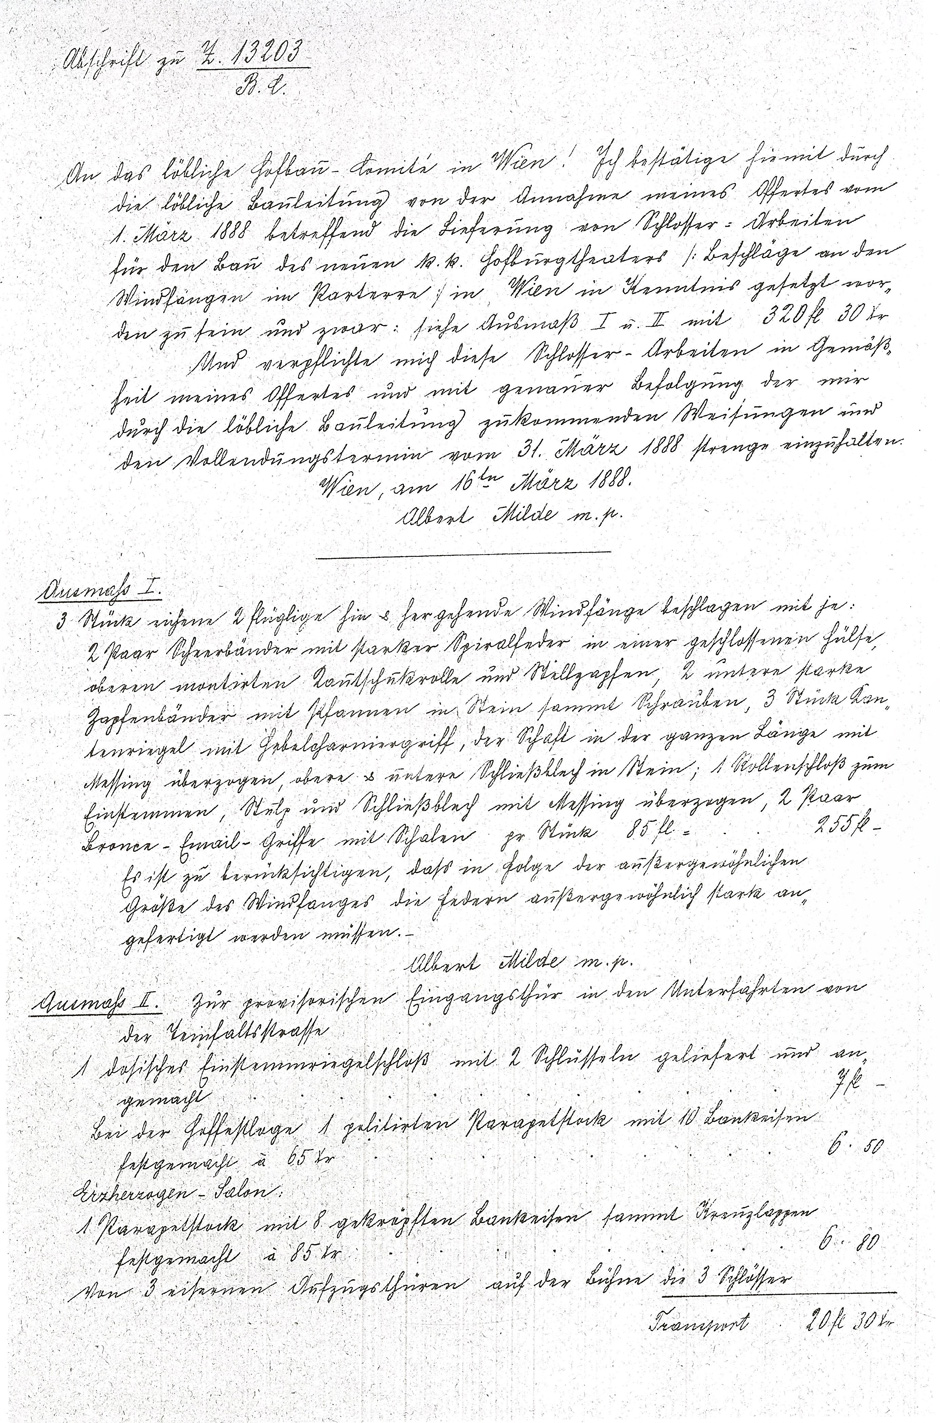 Abschrift zu Z. 13203
B. L.
An das löbliche Hofbau-Comité in Wien! Ich bestätige hiemit durch
die löbliche Bauleitung von der Annahme meines Offertes vom
1. März 1888 betreffend die Lieferung von Schlosser=Arbeiten
für den Bau des neuen k. k. Hofburgtheaters /: Beschläge an den
Windfängen im Parterre :/ in Wien in Kenntnis gesetzt wor„
den zu sein und zwar: siehe Ausmaß I u. II mit 320 fl 30 kr
Und verpflichte mich diese Schlosser-Arbeiten in Gemäß„
heit meines Offertes und mit genauer Befolgung der mir
durch die löbliche Bauleitung zukommenden Weisungen und
den Vollendungstermin vom 31. März 1888 strenge einzuhalten.
Wien, am 16ten März 1888.
Albert Milde m. p.
Ausmass I.
3 Stück eichene 2 flüglige hin & hergehende Windfänge beschlagen mit je:
2 Paar Scheerbänder mit starker Spiralfeder in einer geschlossenen Hülse,
oberen montirten Kautschukrolle und Stellzapfen, 2 untere starke
Zapfenbänder mit Pfannen in Stein sammt Schrauben, 3 Stück Kan„
tenriegel mit Hebelcharniergriff, der Schaft in der ganzen Länge mit
Messing überzogen, obere & untere Schließblech in Stein; 1 Rollenschloß zum
Einstemmen, Stulp und Schließblech mit Messing überzogen, 2 Paar
Bronce-Email-Griffe mit Schalen pr Stück 85 fl = . . 255 fl –
Es ist zu berücksichtigen, dass in Folge der außergewöhnlichen
Größe des Windfanges die Federn außergewöhnlich stark an„
gefertigt werden müssen.–
Albert Milde m. p.
Ausmass II. Zur provisorischen Eingangsthür in den Unterfahrten von
der Teinfaltsstrasse
1 dosisches Einstemmriegelschloß mit 2 Schlüsseln geliefert und an„
gemacht . . . . . . . 7 fl –
Bei der Hoffestloge 1 politirten Parapetstock mit 10 Bankeisen
festgemacht à 65 kr . . . . . . 6 . 50
Erzherzogen-Salon:
1 Parapetstock mit 8 gekröpften Bankeisen sammt Kreuzlappen
festgemacht à 85 kr . . . . . . 6 . 80
Von 3 eisernen Aufzugsthüren auf der Bühne die 3 Schlösser
Transport . 20 fl 30 kr